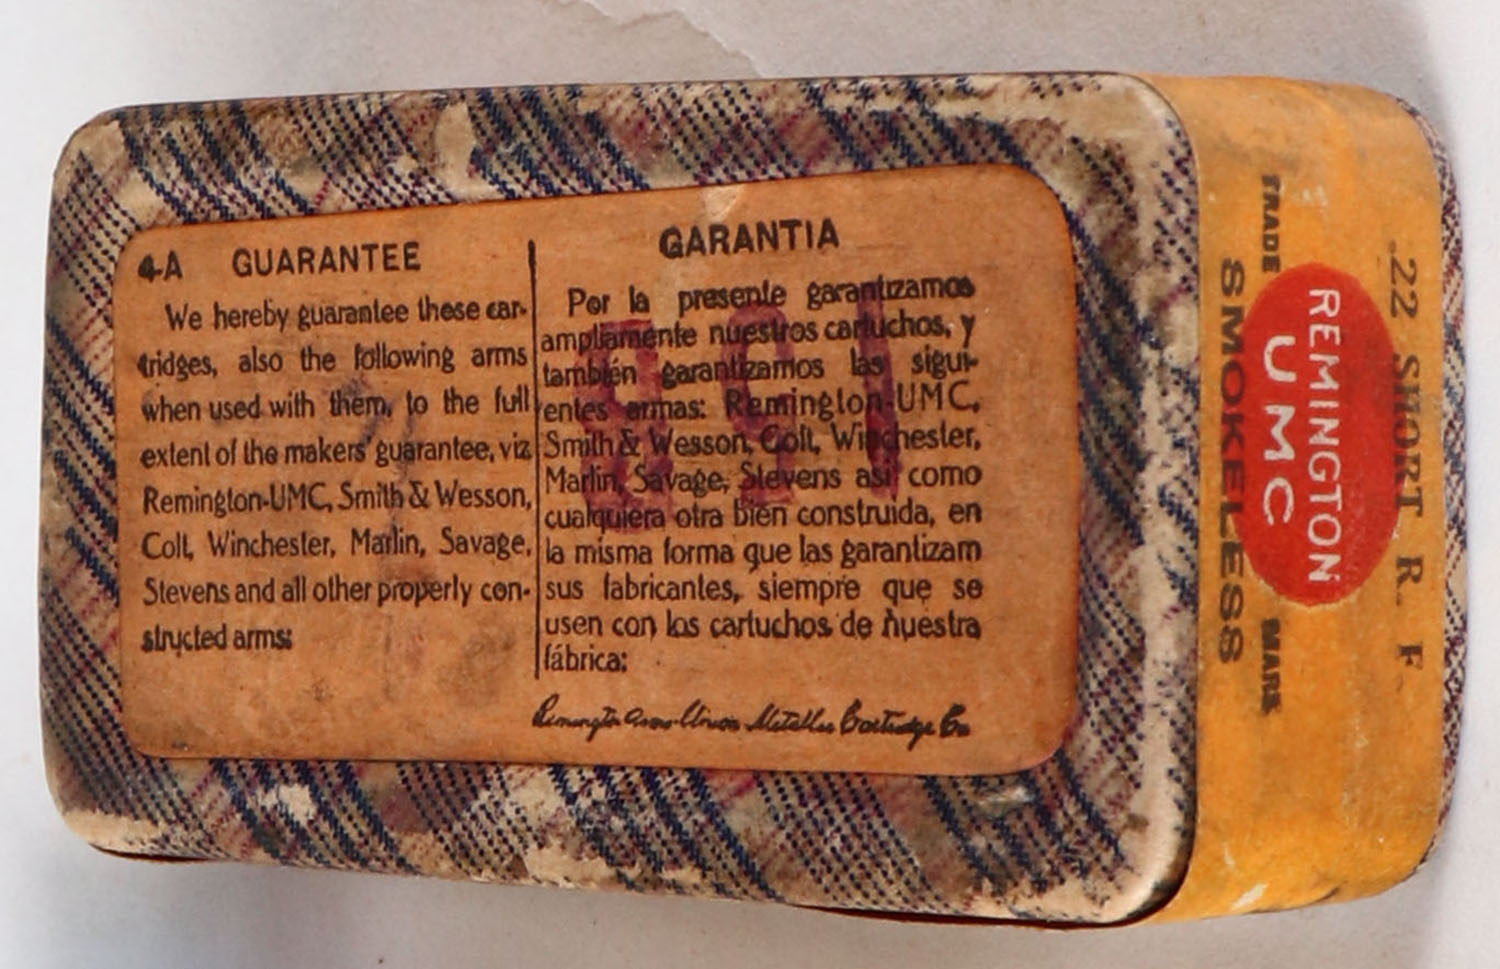 4-A GUARANTEE
We hereby guarantee these car-
tridges, also the following arms
when used with them, to the full
extent of the makers' guarantee, viz
Remington-UMC, Smith & Wesson,
Colt, Winchester, Marlin, Savage,
Stevens and all other properly con-
structed arms:
GARANTIA
Por la presente garantizamos
ampliamente nuestros cartuchos, y
también garantizamos las sigui-
entes armas: Remington-UMC,
Smith & Wesson, Colt, Winchester,
Marlin, Savage, Stevens asi como
cualquiera otra bien construida, en
la misma forma que las garantizam
sus fabricantes, siempre que se
usen con los cartuchos de nuestra
fábrica:
Remington Arms-Union Metallic Cartridge Co
.22 SHORT R. F.
REMINGTON
UMC
TRADE MARK
SMOKELESS